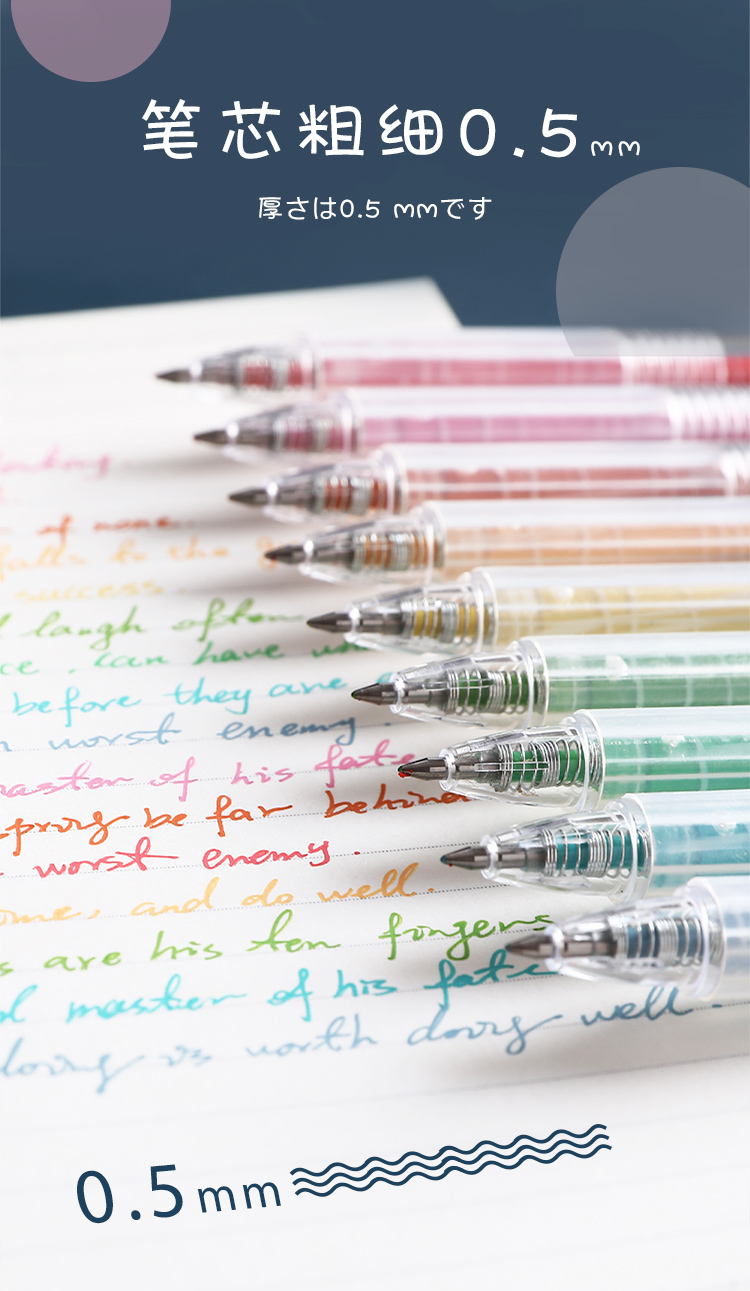 笔芯粗细0.5mm
厚さは0.5 mmです
of none.
falls to the
success.
laugh often
ce, can have
before they are
worst enemy.
master of his fate
spring be far behind
worst enemy.
ome, and do well.
s are his ten fingers
master of his fate
doing is worth doing well.
0.5mm